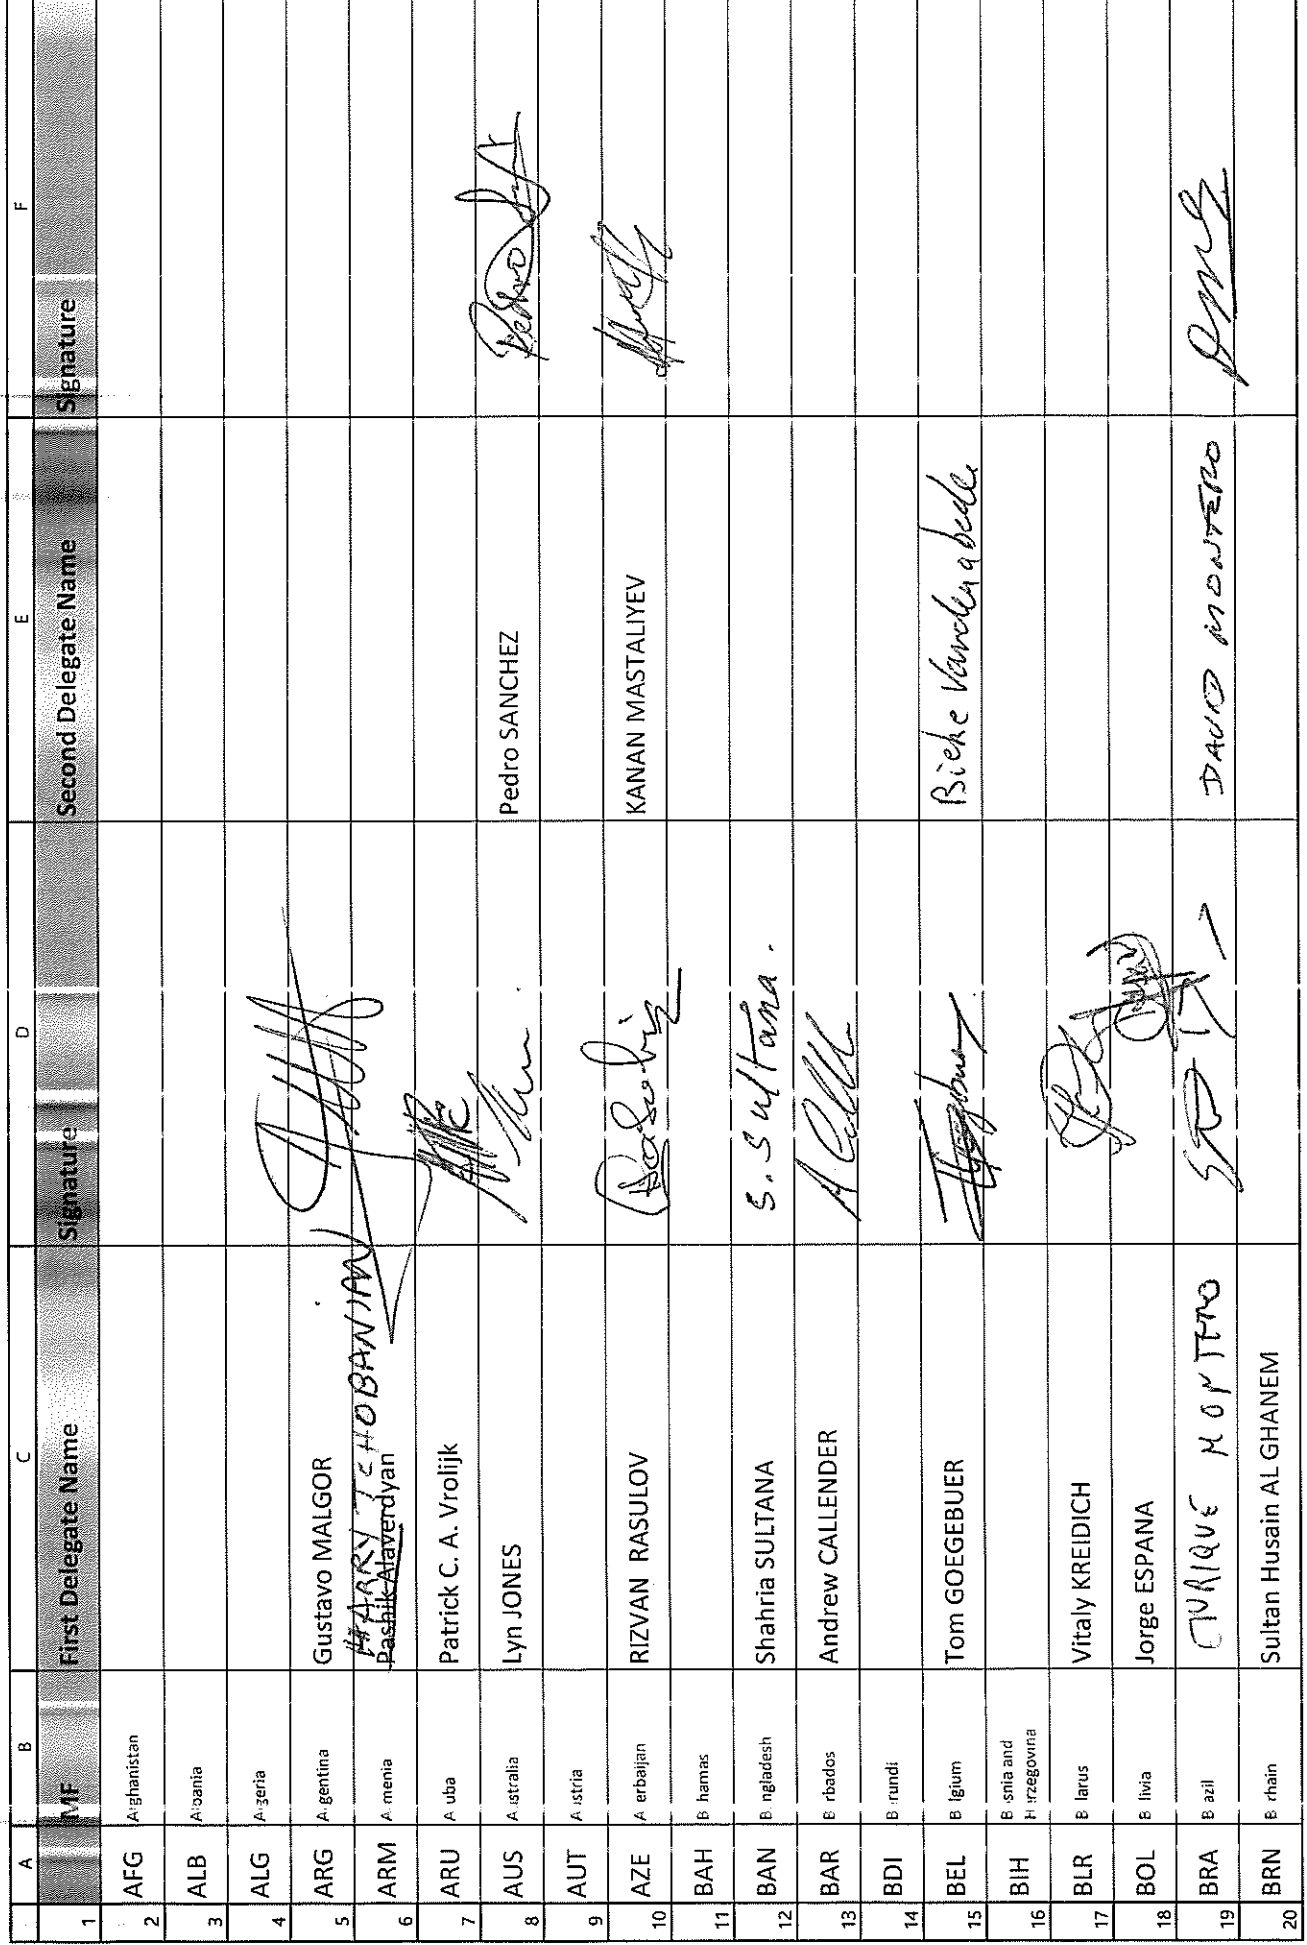 A B C D E F
1 MF First Delegate Name Signature Second Delegate Name Signature
2 AFG Afghanistan
3 ALB Albania
4 ALG Algeria
5 ARG A gentina Gustavo MALGOR
6 ARM A menia HARRY TCHOBANIAN Pashik Alaverdyan
7 ARU A uba Patrick C. A. Vrolijk
8 AUS A stralia Lyn JONES Pedro SANCHEZ Pedro
9 AUT A stria
10 AZE A erbaijan RIZVAN RASULOV KANAN MASTALIYEV
11 BAH B hamas
12 BAN B ngladesh Shahria SULTANA S. Sultana.
13 BAR B rbados Andrew CALLENDER
14 BDI B rundi
15 BEL B lgium Tom GOEGEBUER Bieke Vandenabeele
16 BIH B snia and H rzegovina
17 BLR B larus Vitaly KREIDICH
18 BOL B livia Jorge ESPANA
19 BRA B azil MONTERO DAVID MONTERO
20 BRN B rhain Sultan Husain AL GHANEM